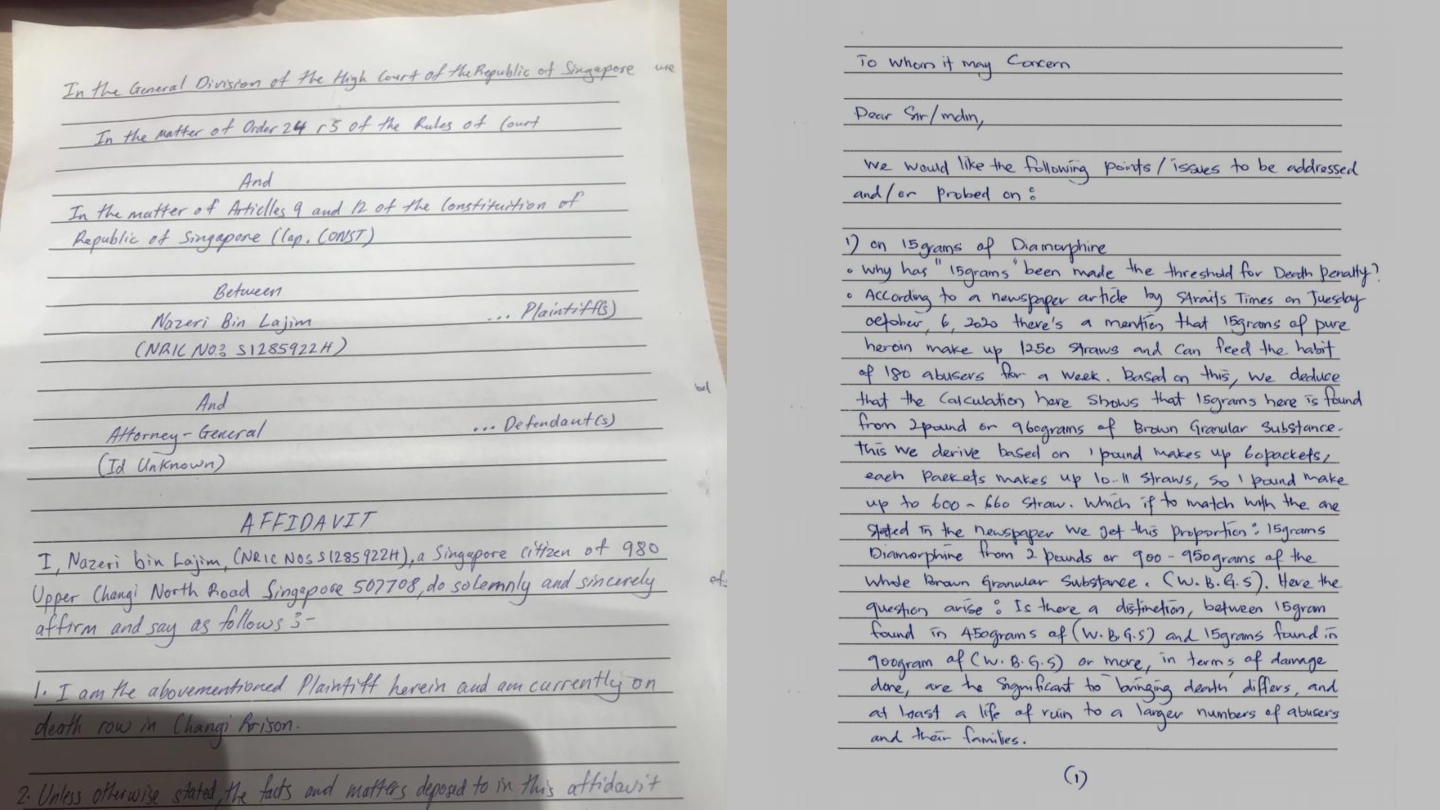 In the General Division of the High Court of the Republic of Singapore
In the matter of Order 24 r 5 of the Rules of Court
And
In the matter of Articlles 9 and 12 of the Constituition of
Republic of Singapore (Cap. CONST)
Between
Nazeri Bin Lajim ... Plaintiff(s)
(NRIC NO: S1285922H)
And
Attorney-General ... Defendant(s)
(Id Unknown)
AFFIDAVIT
I, Nazeri bin Lajim, (NRIC NO: S1285922H), a Singapore citizen of 980
Upper Changi North Road Singapore 507708, do solemnly and sincerely
affirm and say as follows :-
1. I am the abovementioned Plaintiff herein and am currently on
death row in Changi Prison.
2. Unless otherwise stated, the facts and matters deposed to in this affidavit
To whom it may Concern
Dear Sir/mdm,
We would like the following points / issues to be addressed
and/or probed on :
1) on 15grams of Diamorphine
• Why has "15grams" been made the threshold for Death penalty?
• According to a newspaper article by Straits Times on Tuesday
october, 6, 2020 there's a mention that 15grams of pure
heroin make up 1250 straws and can feed the habit
of 180 abusers for a week. Based on this, we deduce
that the calculation here shows that 15grams here is found
from 2pound or 960grams of Brown Granular Substance.
this we derive based on 1 pound makes up 60packets,
each packets makes up 10-11 straws, so 1 pound make
up to 600 - 660 straw. Which if to match with the one
stated in the newspaper we get this proportion : 15grams
Diamorphine from 2 pounds or 900 - 950grams of the
whole Brown Granular Substance. (W.B.G.S). Here the
question arise : Is there a distinction, between 15gram
found in 450grams of (W.B.G.S) and 15grams found in
900gram of (W.B.G.S) or more, in terms of damage
done, are the significant to "bringing death" differs, and
at least a life of ruin to a larger numbers of abusers
and their families.
(1)